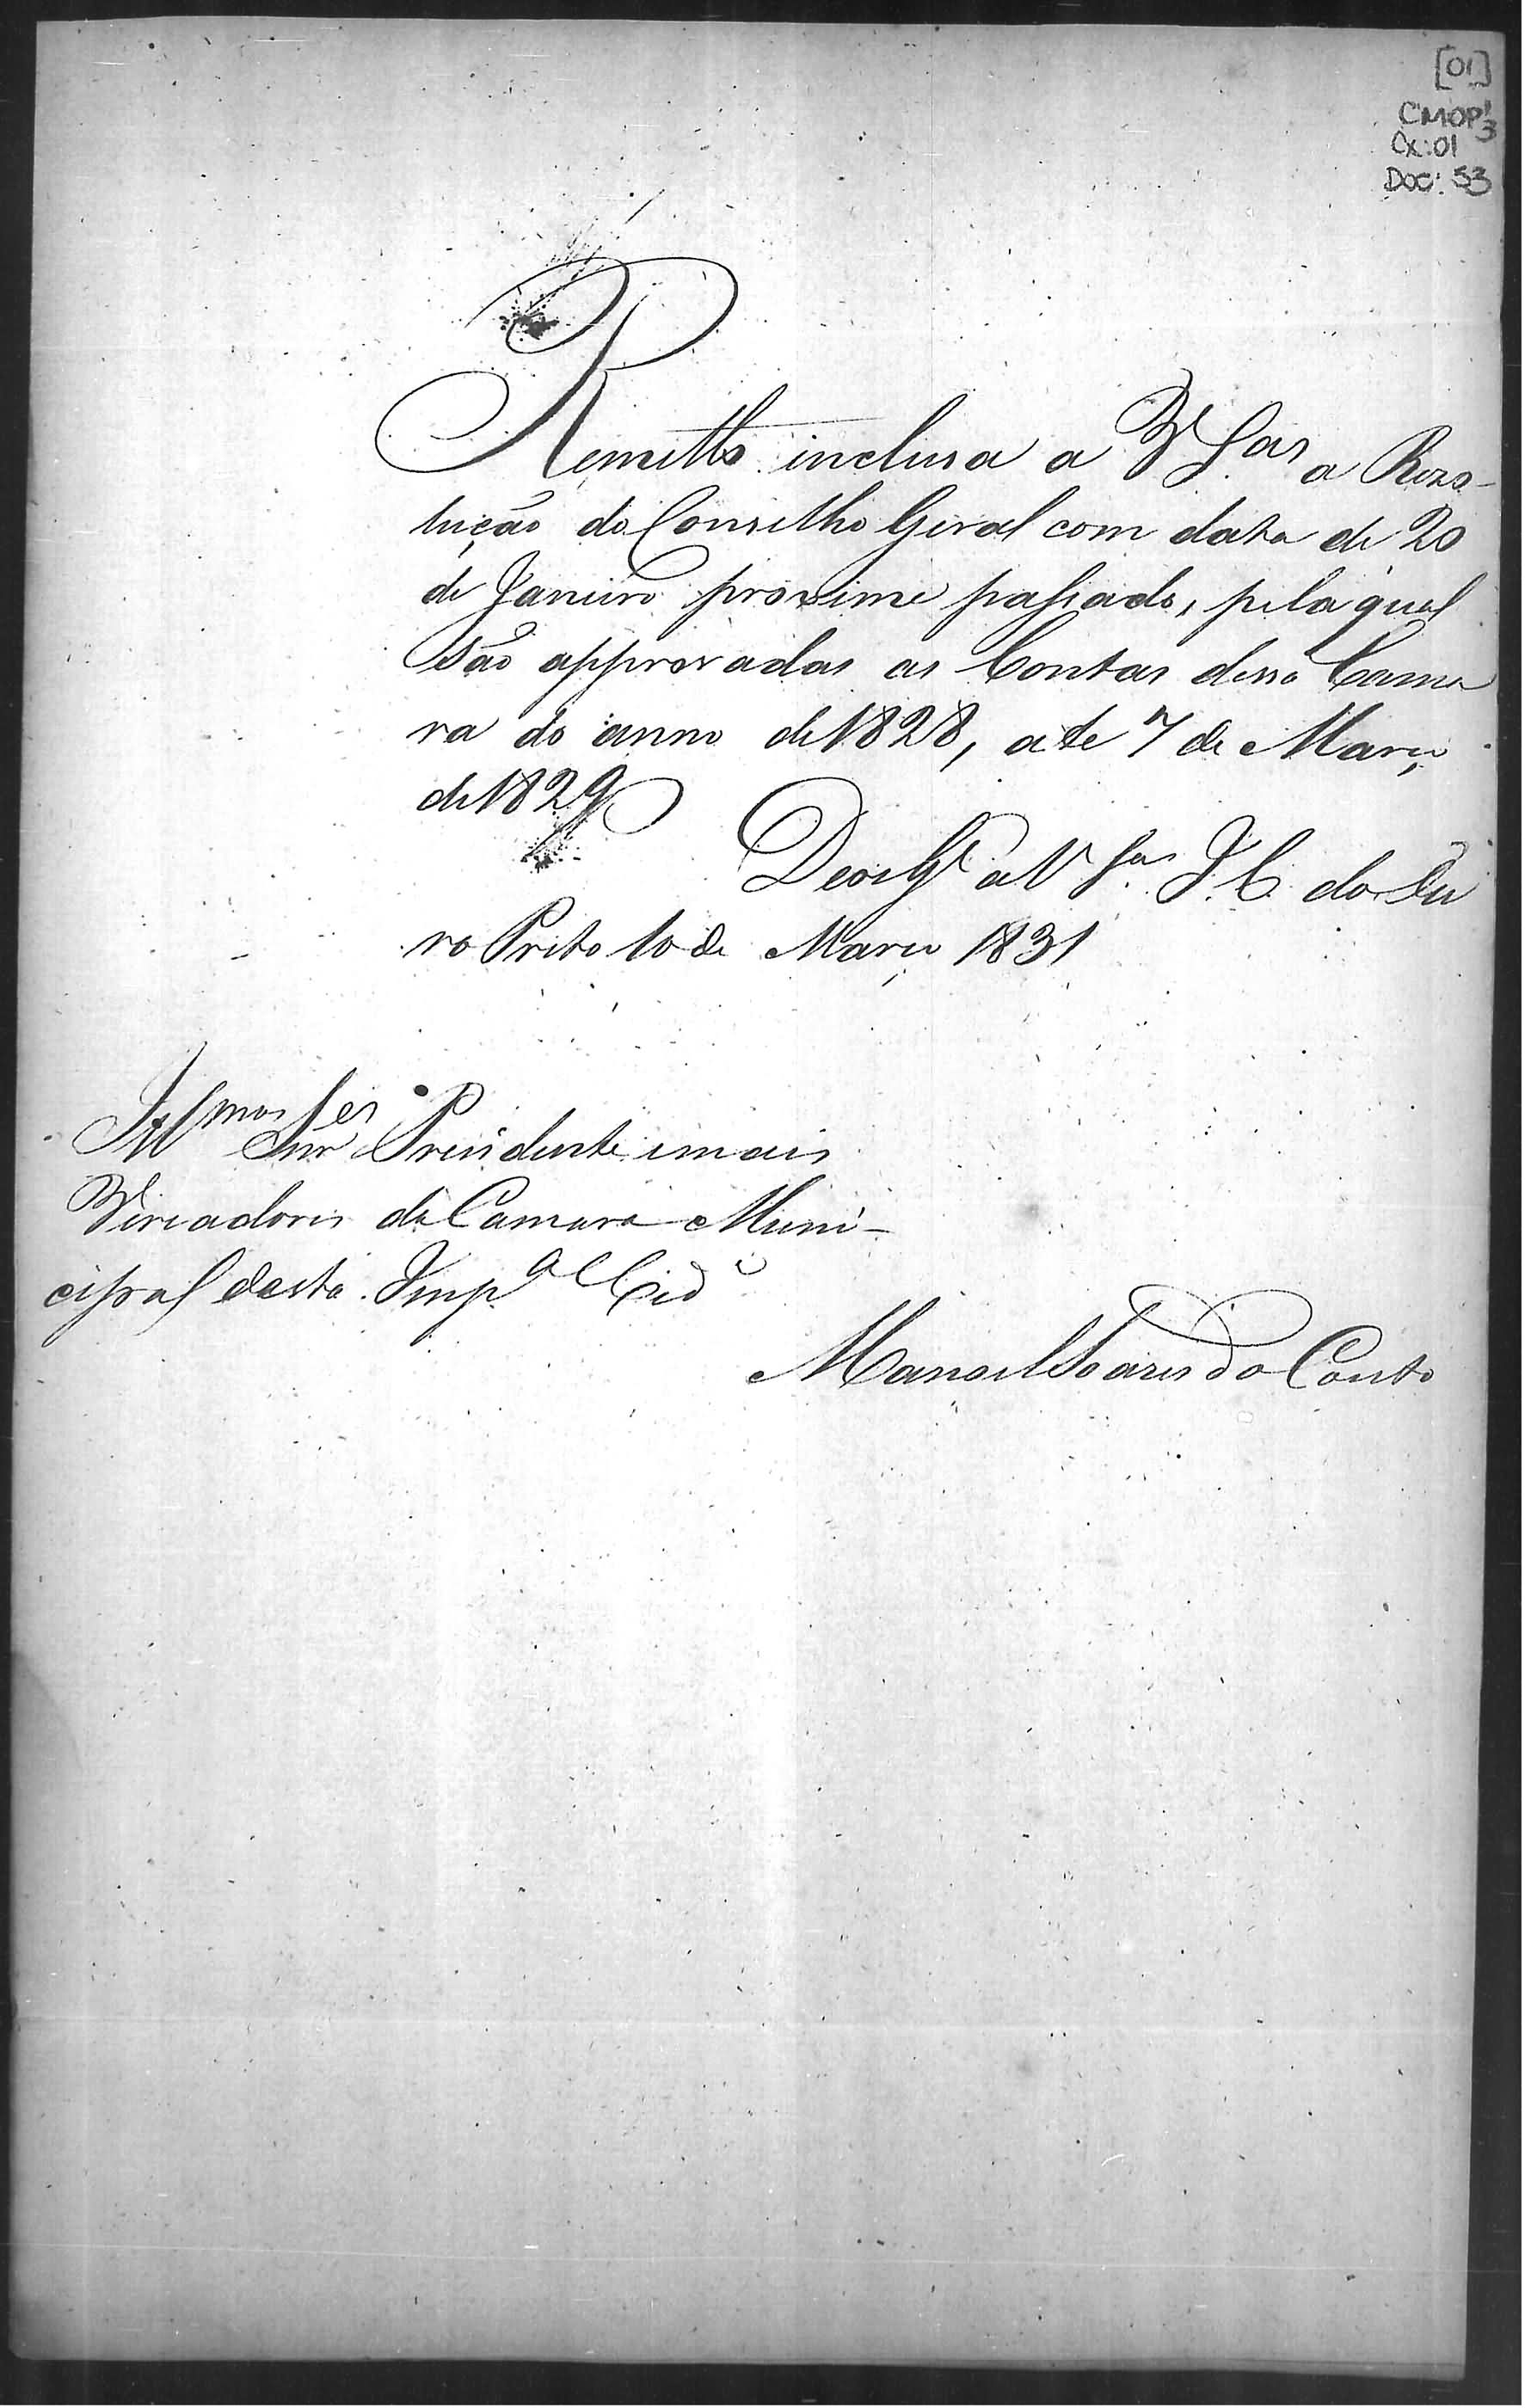 [01]
CMOP 1/3
Cx: 01
DOC: 53
Remetto inclusa a V S.as a Rezo-
lução do Conselho Geral com data de 20
de Janeiro proximo passado, pela qual
são approvadas as Contas dessa Cama
ra do anno de 1828, ate 7 de Março
de 1829
Deos G.e a V S.as I. C. do Ou
ro Preto 10 de Março 1831
Ill.mos Snr.es Presidente e mais
Vereadores da Camara Muni-
cipal desta Imp.al Cid.e
Manoel Soares do Couto